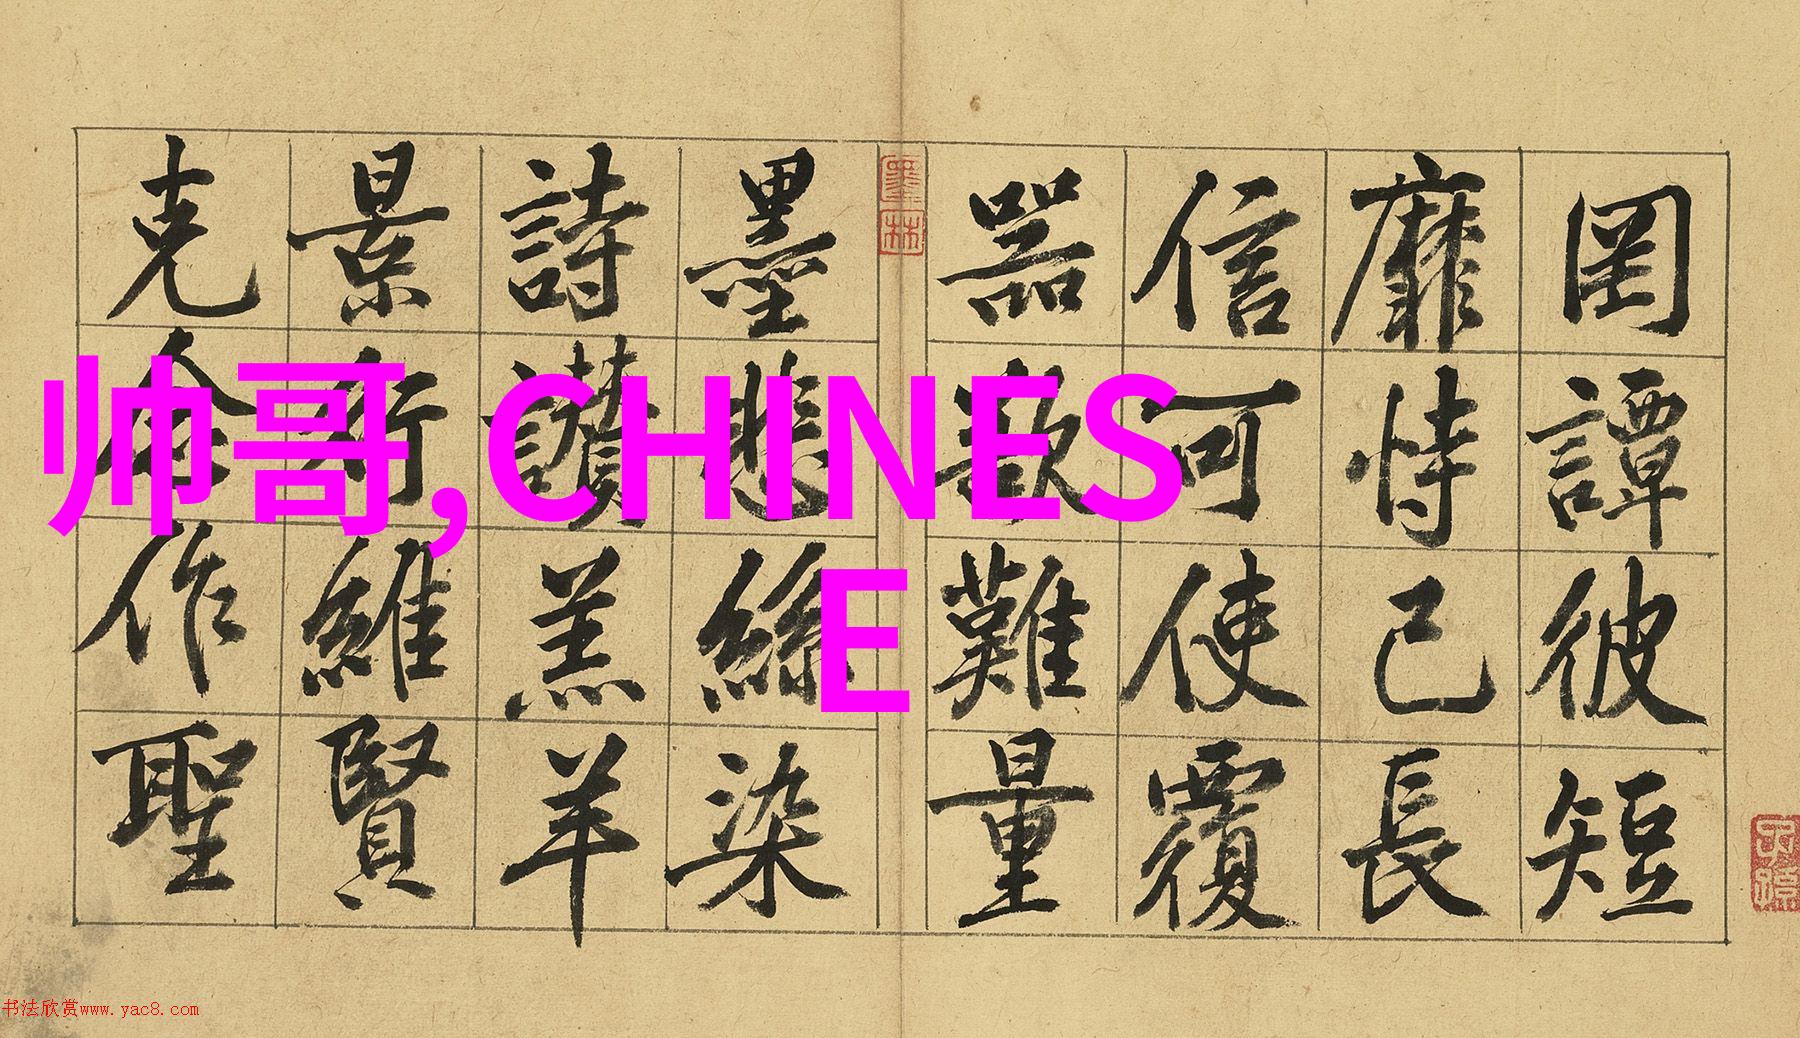 罔談彼短
靡恃己長
信可使覆
器欲難量
墨悲絲染
詩讚羔羊
景行維賢
克念作聖
墨林
帅哥,CHINES
E
书法欣赏www.yac8.com